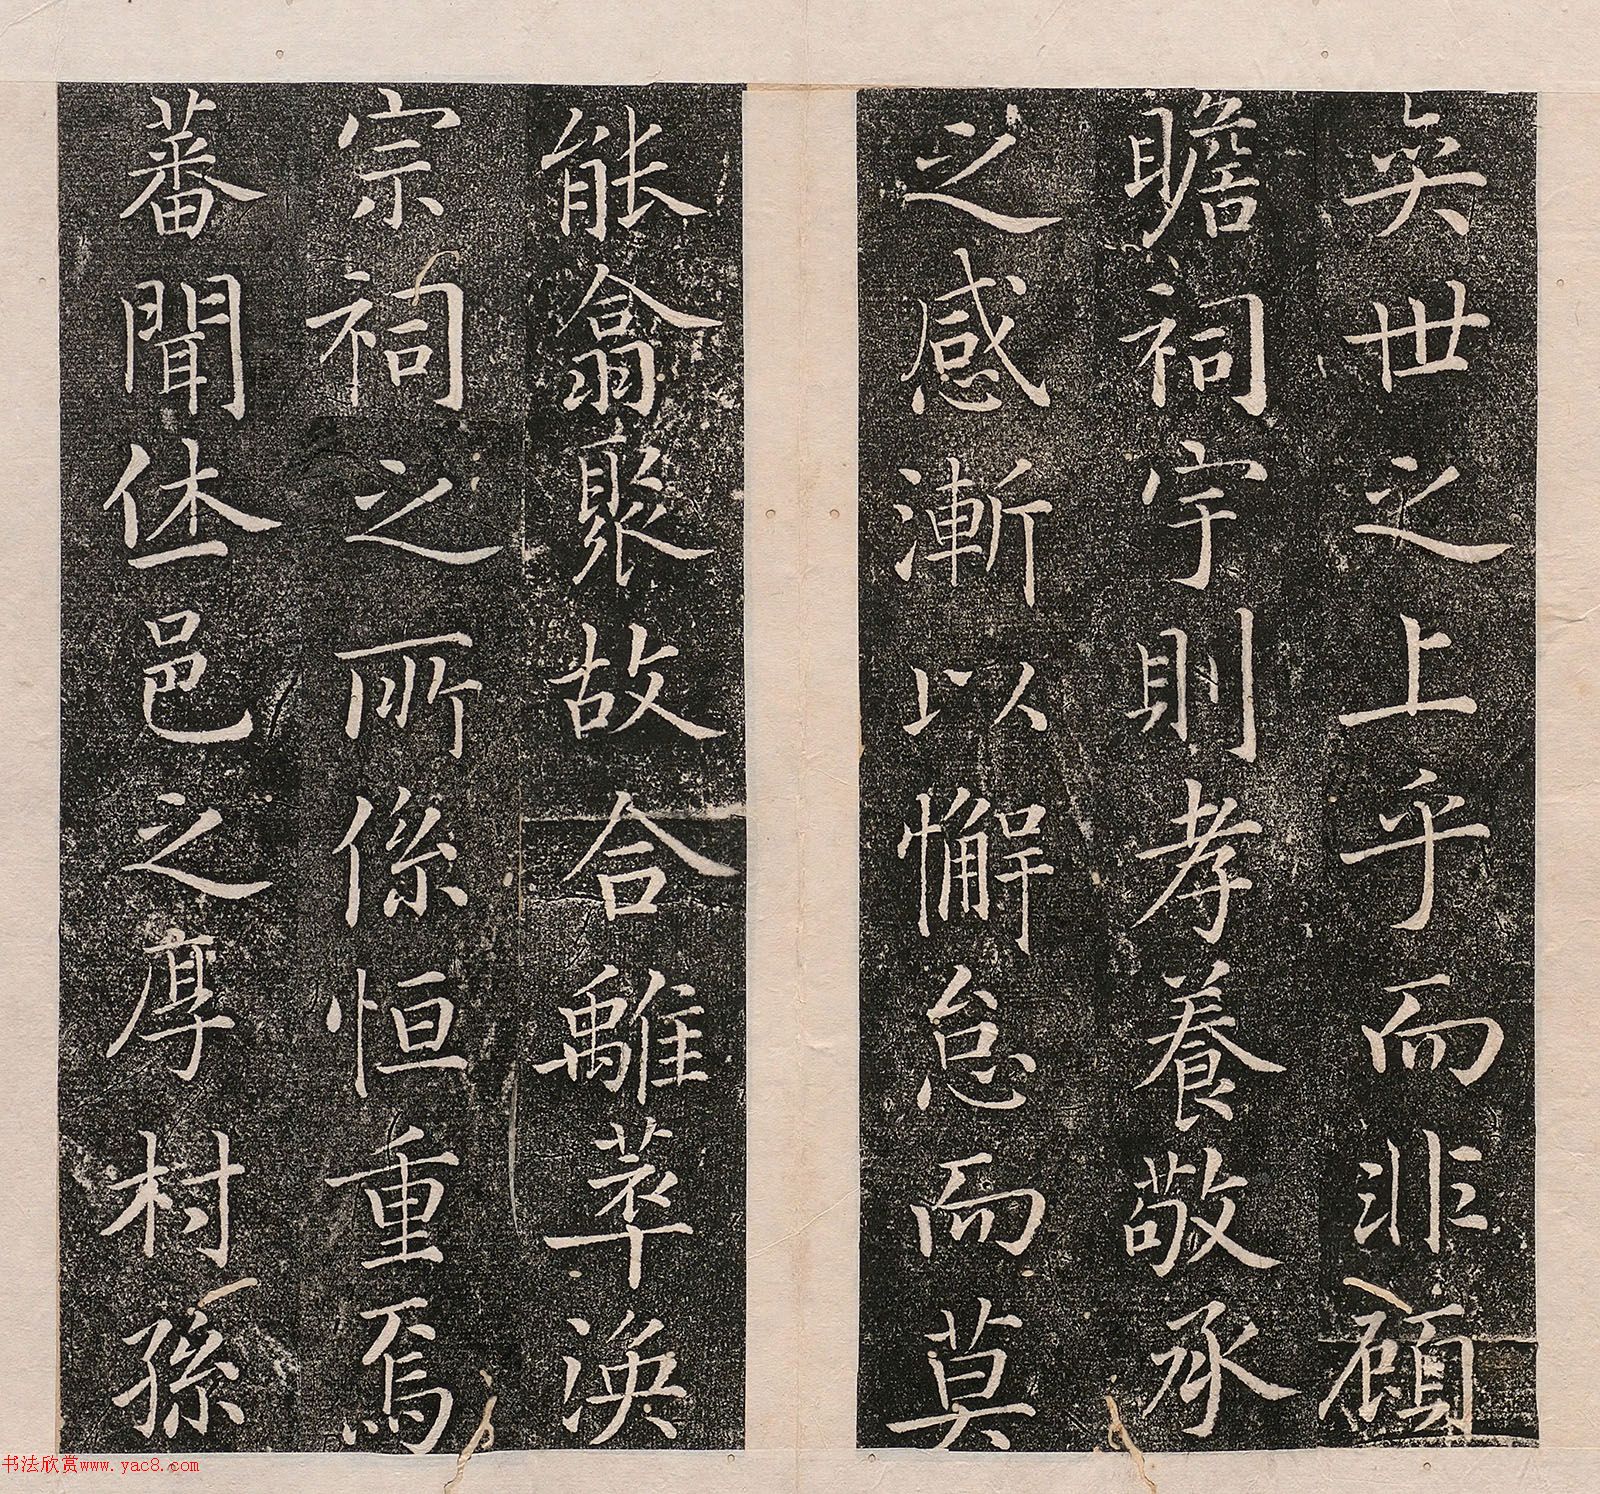 奕世之上乎而非顧
瞻祠宇則孝養敬承
之感漸以懈怠而莫
能翕聚故合離萃渙
宗祠之所係恒重焉
蕃聞休邑之厚村孫
书法欣赏www.yac8.com